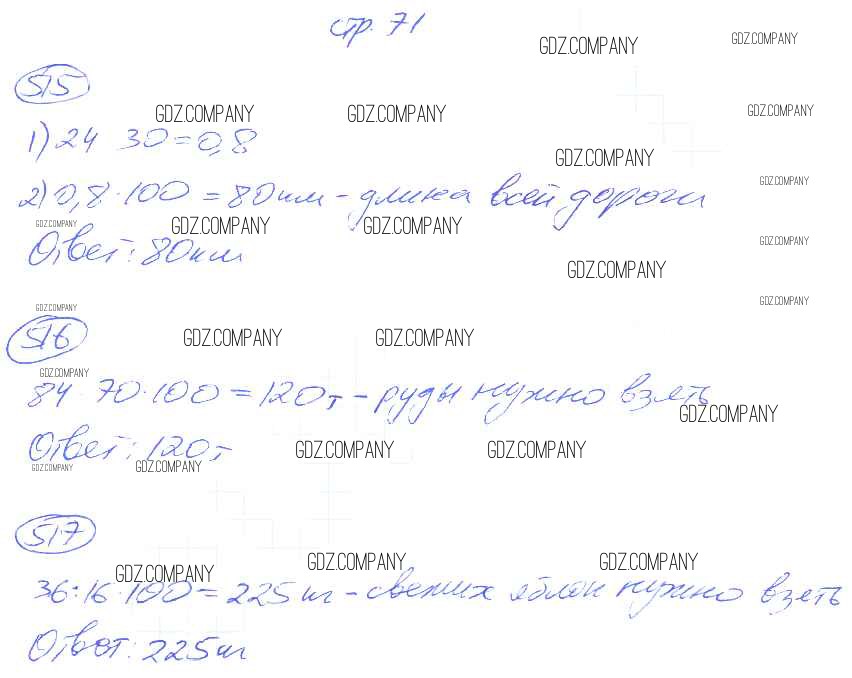 стр. 71
GDZ.COMPANY GDZ.COMPANY
515
GDZ.COMPANY GDZ.COMPANY GDZ.COMPANY
1) 24 30 = 0,8
GDZ.COMPANY
2) 0,8 · 100 = 80 км - длина всей дороги
GDZ.COMPANY
GDZ.COMPANY GDZ.COMPANY GDZ.COMPANY
Ответ: 80 км
GDZ.COMPANY
GDZ.COMPANY
GDZ.COMPANY GDZ.COMPANY
516
GDZ.COMPANY GDZ.COMPANY
GDZ.COMPANY
84 70 · 100 = 120 т - руды нужно взять
GDZ.COMPANY
Ответ: 120 т
GDZ.COMPANY GDZ.COMPANY
GDZ.COMPANY GDZ.COMPANY
517
GDZ.COMPANY GDZ.COMPANY GDZ.COMPANY
36 : 16 · 100 = 225 кг - свежих яблок нужно взять
Ответ: 225 кг